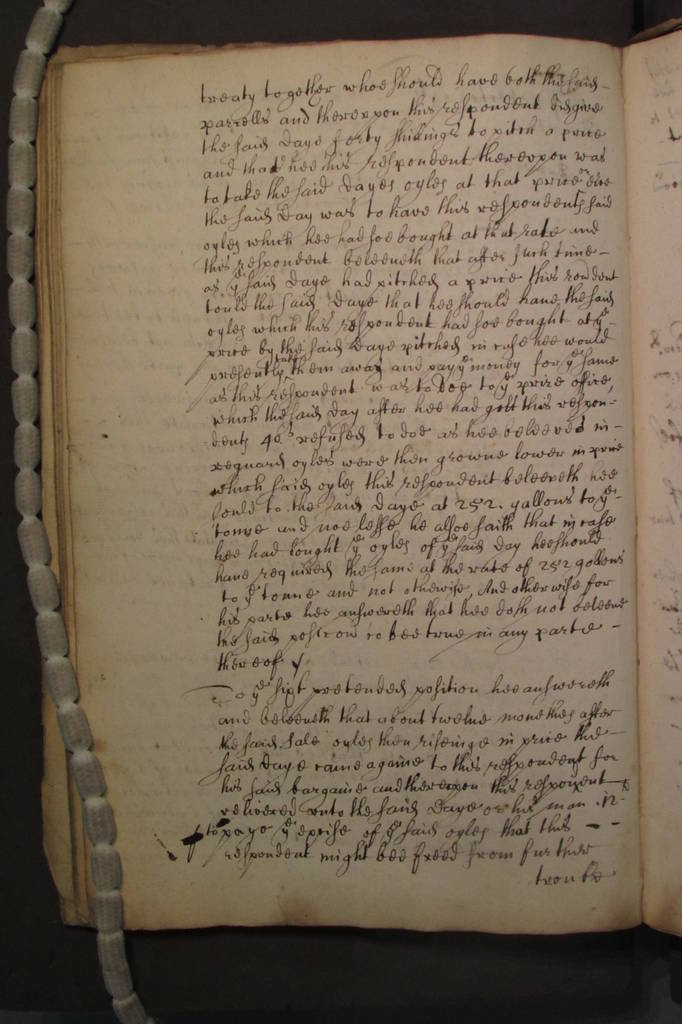 treaty together whoe should have both the said
parcells and therevpon this respondent did give
the said Daye forty shillings to pitch a price
and that hee this respondent therevpon was
to take the said Dayes oyles at that price or else
the said Day was to have this respondents said
oyles which hee had soe bought at that rate and
this respondent beleeueth that after such time
as ye said Daye had pitched a price this rondent
tould the said Daye that hee should haue the said
oyles which this respondent had soe bought at ye
price by the said Daye pitched in case hee would
presently them away and pay ye money for ye same
as this respondent was to doe to ye prize office,
which the said Day after hee had gott this respon-
dents 40s refused to doe as hee beleeves in
reguard oyles were then growne lower in price
which said oyles this respondent beleeveth hee
sould to the said Daye at 252. gallons to ye
tonne and noe lesse he alsoe saith that in case
hee had bought ye oyles of ye said Day hee should
have required the same at the rate of 252 gallons
to ye tonne and not otherwise, And otherwise for
his parte hee answereth that hee doth not beleeue
the said posicon to bee true in any parte
thereof
To ye sixt pretended position hee answereth
and beleeueth that about twelue monethes after
the said sale oyles then riseinge in price the
said Daye came againe to this respondent for
his said bargaine and therevpon this respondent
delivered vnto the said Daye or his man
to paye ye excise of ye said oyles that this
respondent might bee freed from further
trouble